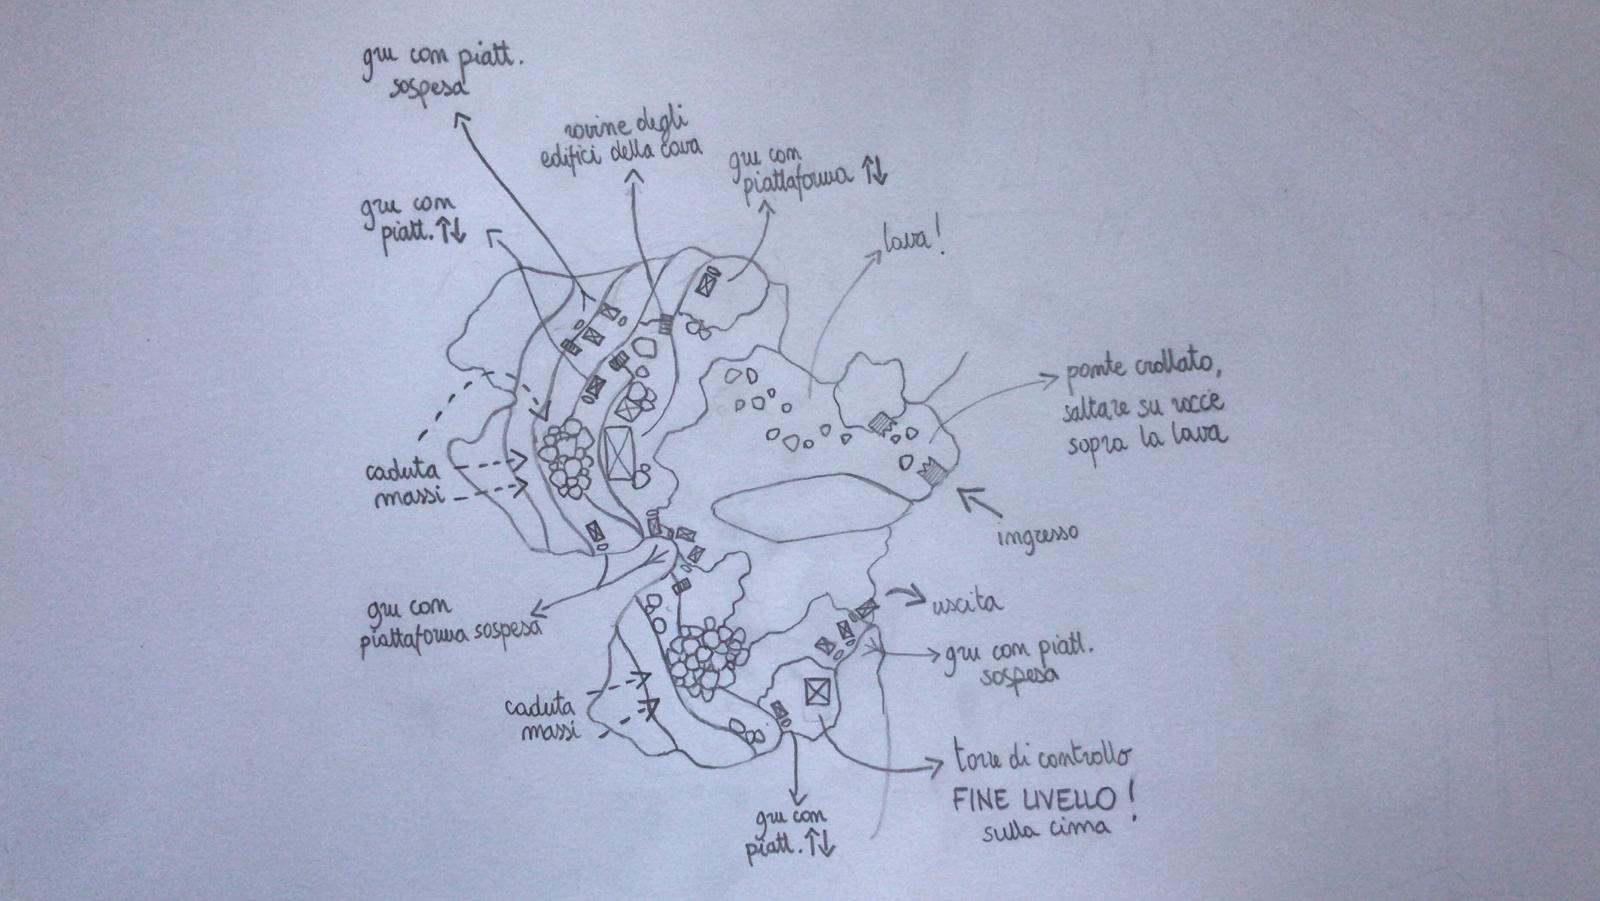 gru con piatt.
sospesa
rovine degli
edifici della cava
gru con
piattaforma ↑↓
gru con
piatt. ↑↓
lava!
ponte crollato,
saltare su rocce
sopra la lava
caduta
massi
ingresso
uscita
gru con
piattaforma sospesa
gru con piatt.
sospesa
caduta
massi
torre di controllo
FINE LIVELLO!
sulla cima
gru con
piatt. ↑↓